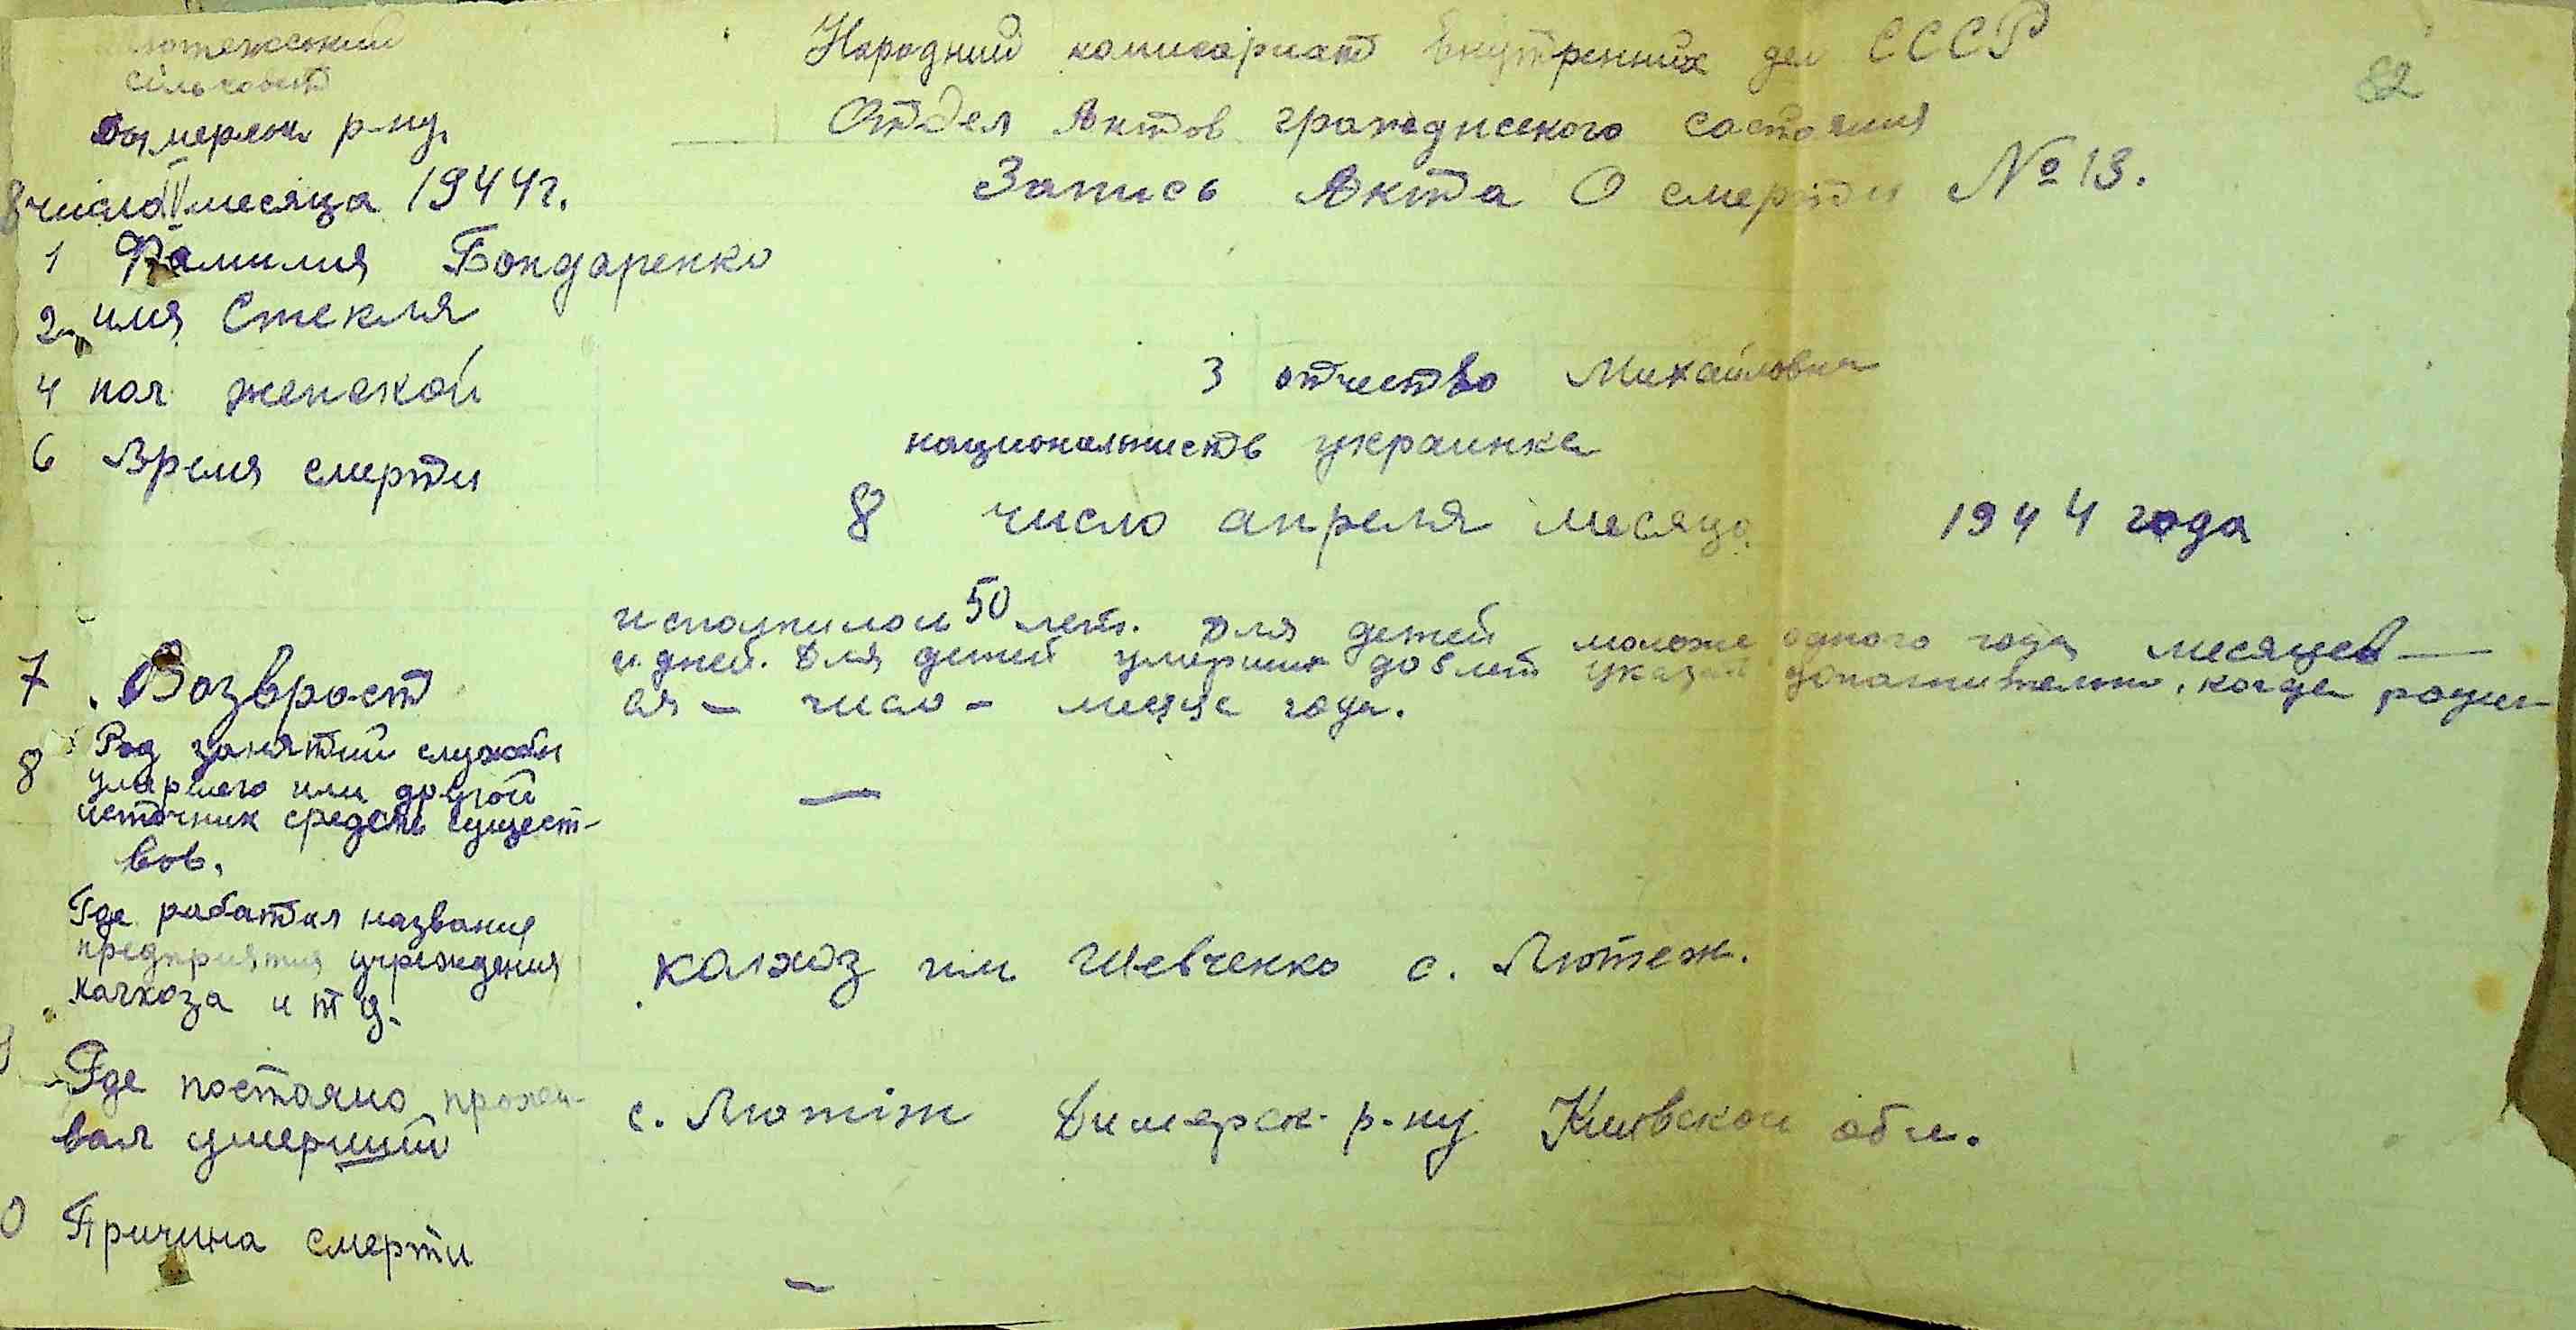 Лютежоский
сильсовет
Дымерск р-ну.
8 число IV месяца 1944г.
Народний комисариат Внутренних дел СССР
82
Отдел Актов гражданского состояния
Запись Акта О смерти № 13.
1 Фамилия Бондаренко
2 имя Стекля
3 отчество Михайловна
4 пол женской
национальность украинка
6 Время смерти
8 число апреля месяца 1944 года
7. Возвраст
исполнилось 50 лет. Для детей моложе одного года месяцев —
и дней. Для детей умерших до 5 лет указать дополнительно, когда родил
ся — число — месяца года.
8 Род занятий службы
умершего или другой
источник средств сущест-
вов.
—
Где работал название
предприятия учреждения
калхоза и т д.
калхоз им Шевченко с. Лютеж.
Где постояно прожи-
вал умерший
с. Лютіж Димерск. р-ну Киевской обл.
0 Причина смерти
—